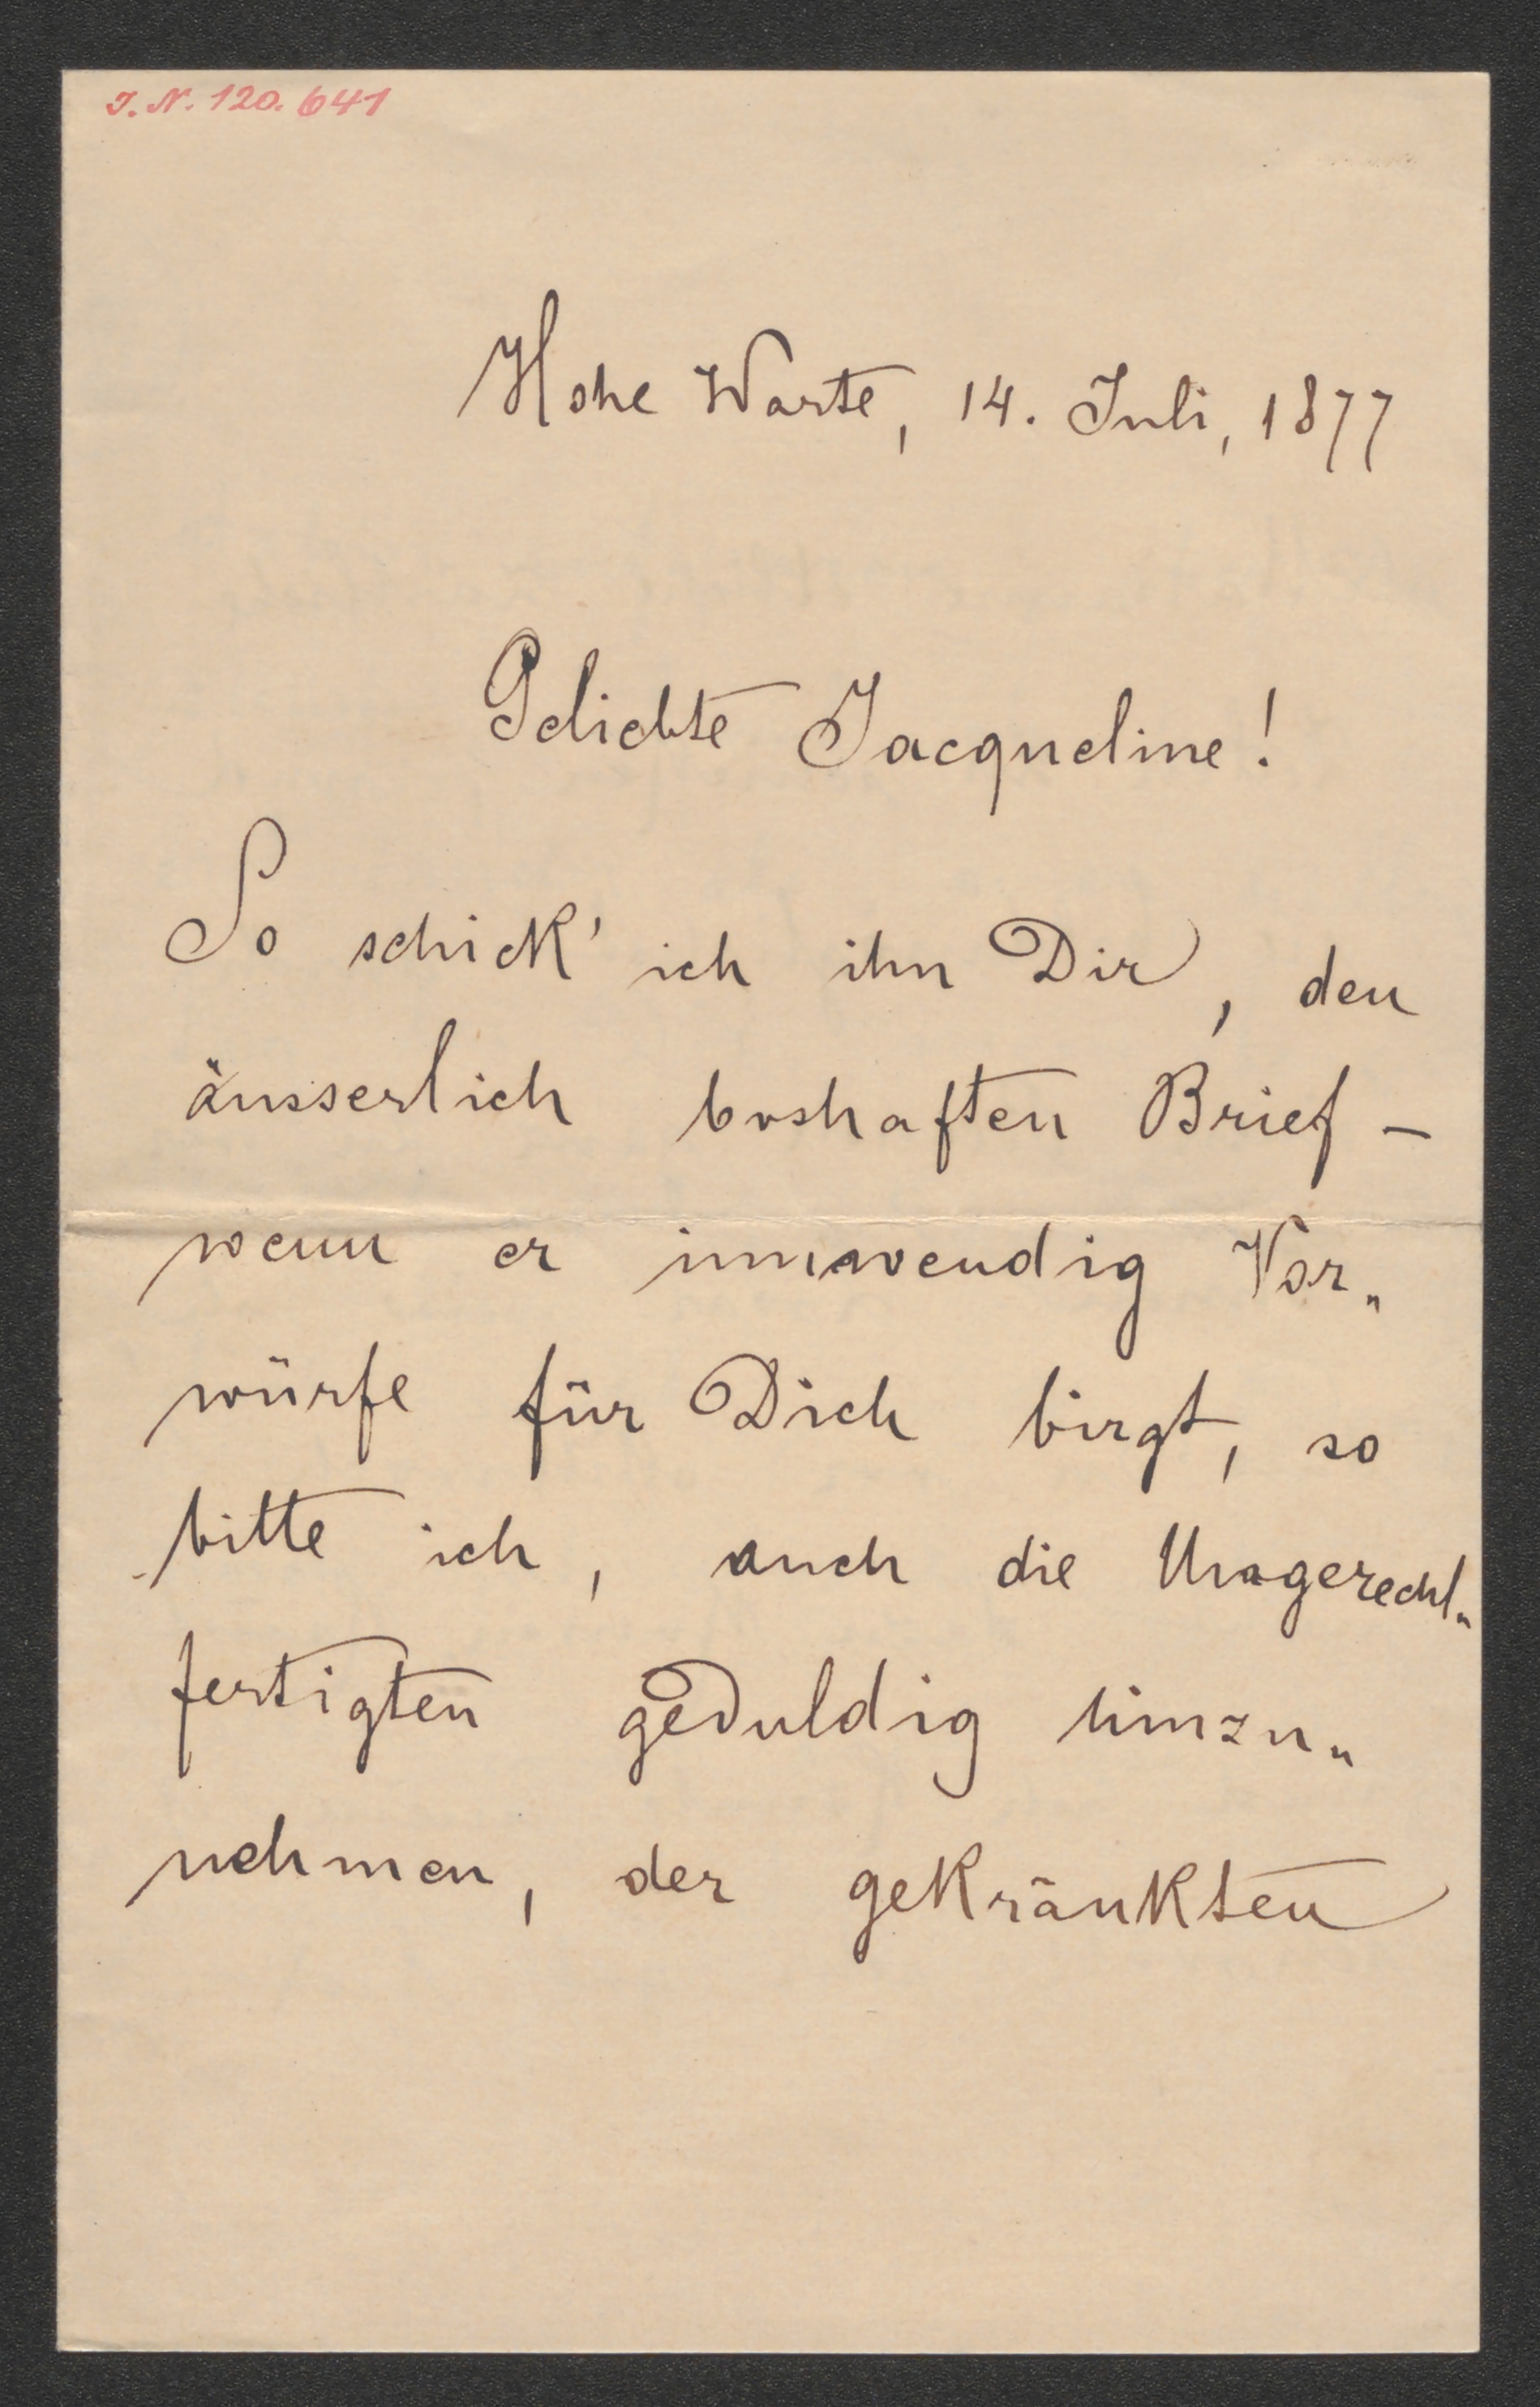 I. N. 120.641
Hohe Warte, 14. Juli, 1877
Geliebte Jacqueline!
So schick' ich ihn Dir, den
äusserlich boshaften Brief –
wenn er innwendig Vor„
würfe für Dich birgt, so
bitte ich, auch die Ungerecht„
fertigten geduldig hinzu„
nehmen, der gekränkten